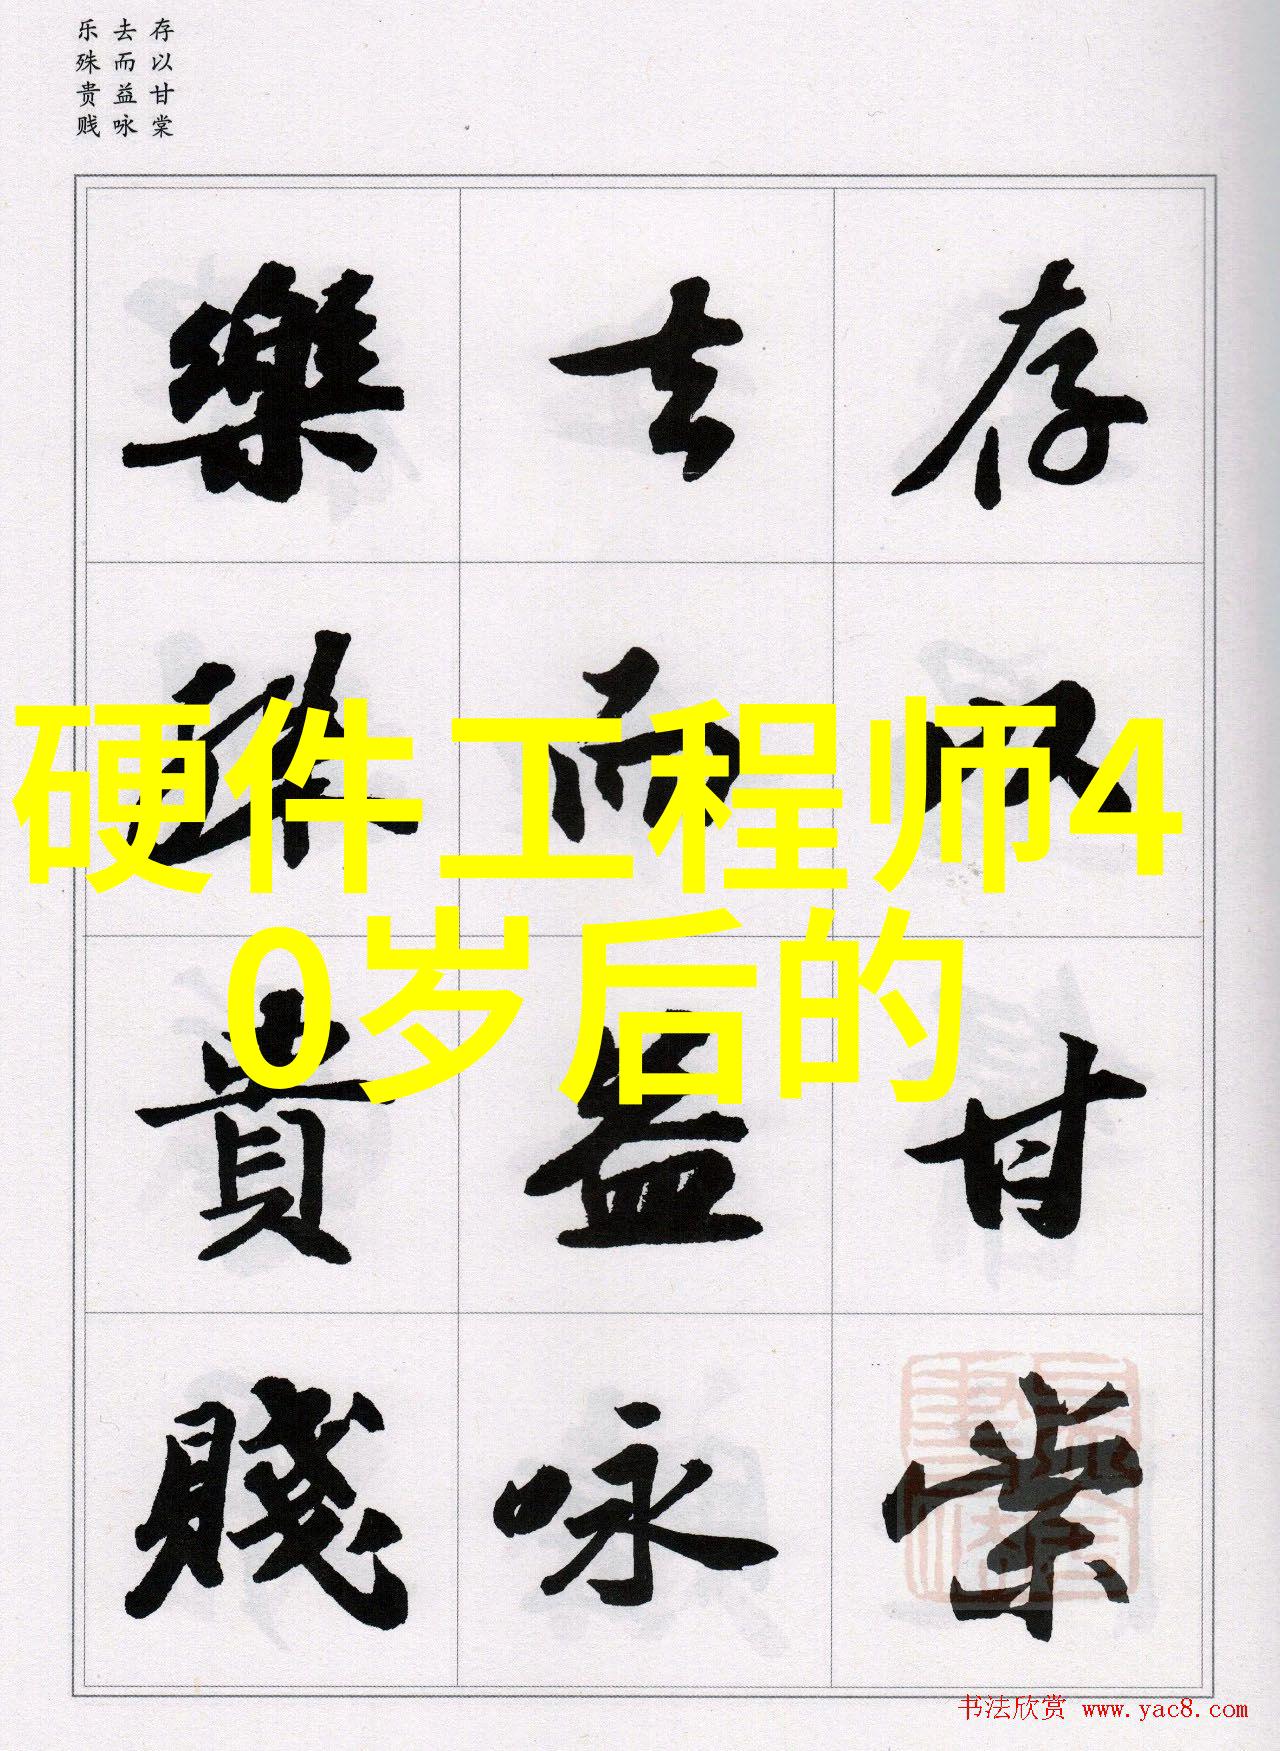 存以甘棠
去而益咏
乐殊贵贱
存以甘棠
去而益咏
樂殊貴賤
硬件工程师4
0岁后的
书法欣赏 www.yac8.com